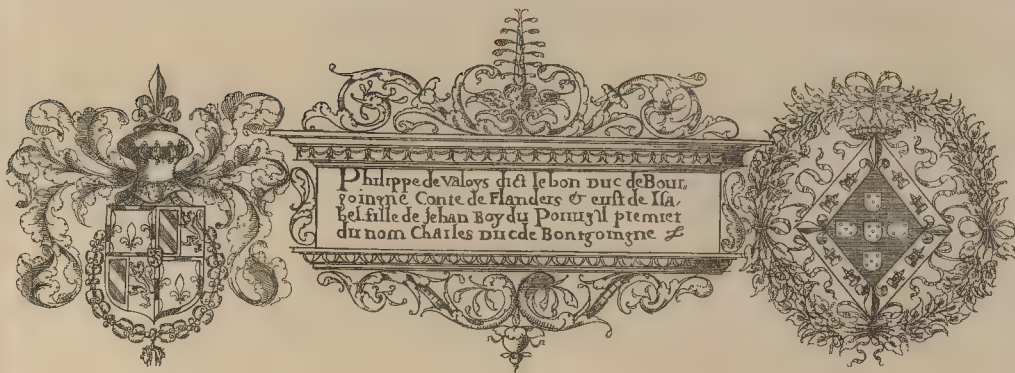 Philippe de Valoys dict le bon Duc de Bour,
goingne Conte de Flanders & eust de Isa,
bel fille de Jehan Roy du Portugil premier
du nom Charles Duc de Bontgoingne